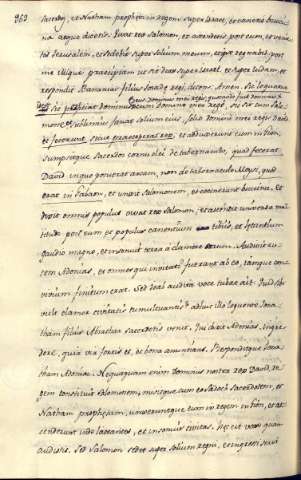 960
sacerdos, et Natham propheta in regem super Israel, et canere bucci-
na atque dicere. Vivat rex Salomon, et ascendetis post eum, et veniet
Jerusalem, et sedebit super solium meum, et ipse regnabit pro
me illique praecipiam ut sit dux super Israel et super Iudam, et
respondit Banaias filius Joiadae regi, dicens Amen, sic loquatur
Dominus Deus domini mei regis, quomodo fuit Dominus
cum domino meo rege, sic sit cum Salo-
mone, et sublimius faciat solium eius, solio domini mei regis David
et fecerunt, sicut praeceperat rex et adduxerunt eum in Sion,
sumpsitque Sacerdos cornu olei de tabernaculo, quod fecerat
David usque ponerat arcam, non de tabernaculo Moysi, quod
erat in Gabaon, et unxit Salomonem, et cecinerunt buccina, et
dixit omnis populus vivat rex Salomon, et ascendit universa mul-
titudo post eum et populus canentium tibiis, et laetantium
gaudio magno, et insonuit terra a clamore eorum. Audivit au-
tem Adonias, et omnes qui invitati fuerant ab eo, iamque con-
vivium finitum erat. Sed Joab audita voce tubae ait. Quid sibi
vult clamor civitatis tumultuantis? adhuc illo loquente Jona-
tham filius Abiathar sacerdotis venit. Cui dixit Adonias, ingre-
dere, quia vir fortis es, et bona annuntians. Responditque Jona-
tham Adoniae. Nequaquam enim dominus noster rex David, re-
gem constituit Salomonem, misitque cum eo Sadoch Sacerdotem, et
Natham prophetam, unxeruntque eum in regem in Sion, et as-
cenderunt inde laetantes, et insonuit civitas. Haec est vox quam
audistis. Sed Salomon sedet super solium regni, et ingressi servi